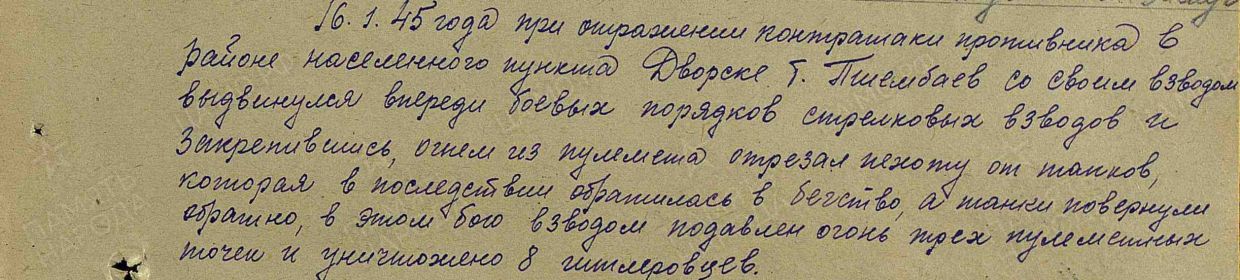 16.1.45 года при отражении контратаки противника в
районе населенного пункта Дворске т. Пшембаев со своим взводом
выдвинулся впереди боевых порядков стрелковых взводов и
закрепившись, огнем из пулемета отрезал пехоту от танков,
которая в последствии обратилась в бегство, а танки повернули
обратно, в этом бою взводом подавлен огонь трех пулеметных
точек и уничтожено 8 гитлеровцев.